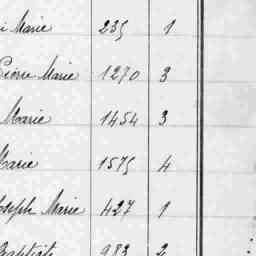 Marie 235 1
Pierre Marie 1270 3
Marie 1454 3
Marie 1575 4
Joseph Marie 427 1
Baptiste 983 2